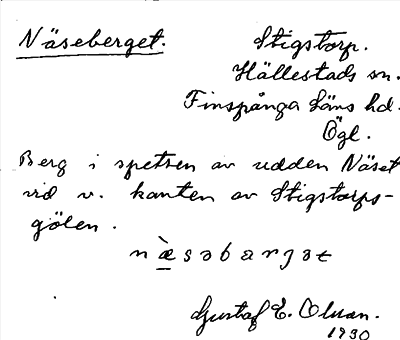 Näseberget.
Stigstorp.
Hällestads sn.
Finspånga läns hd.
Ögl.
Berg i spetsen av udden Näset
vid v. kanten av Stigstorps-
gölen.
næ̀səbarjət
Gustaf E. Olsson.
1930